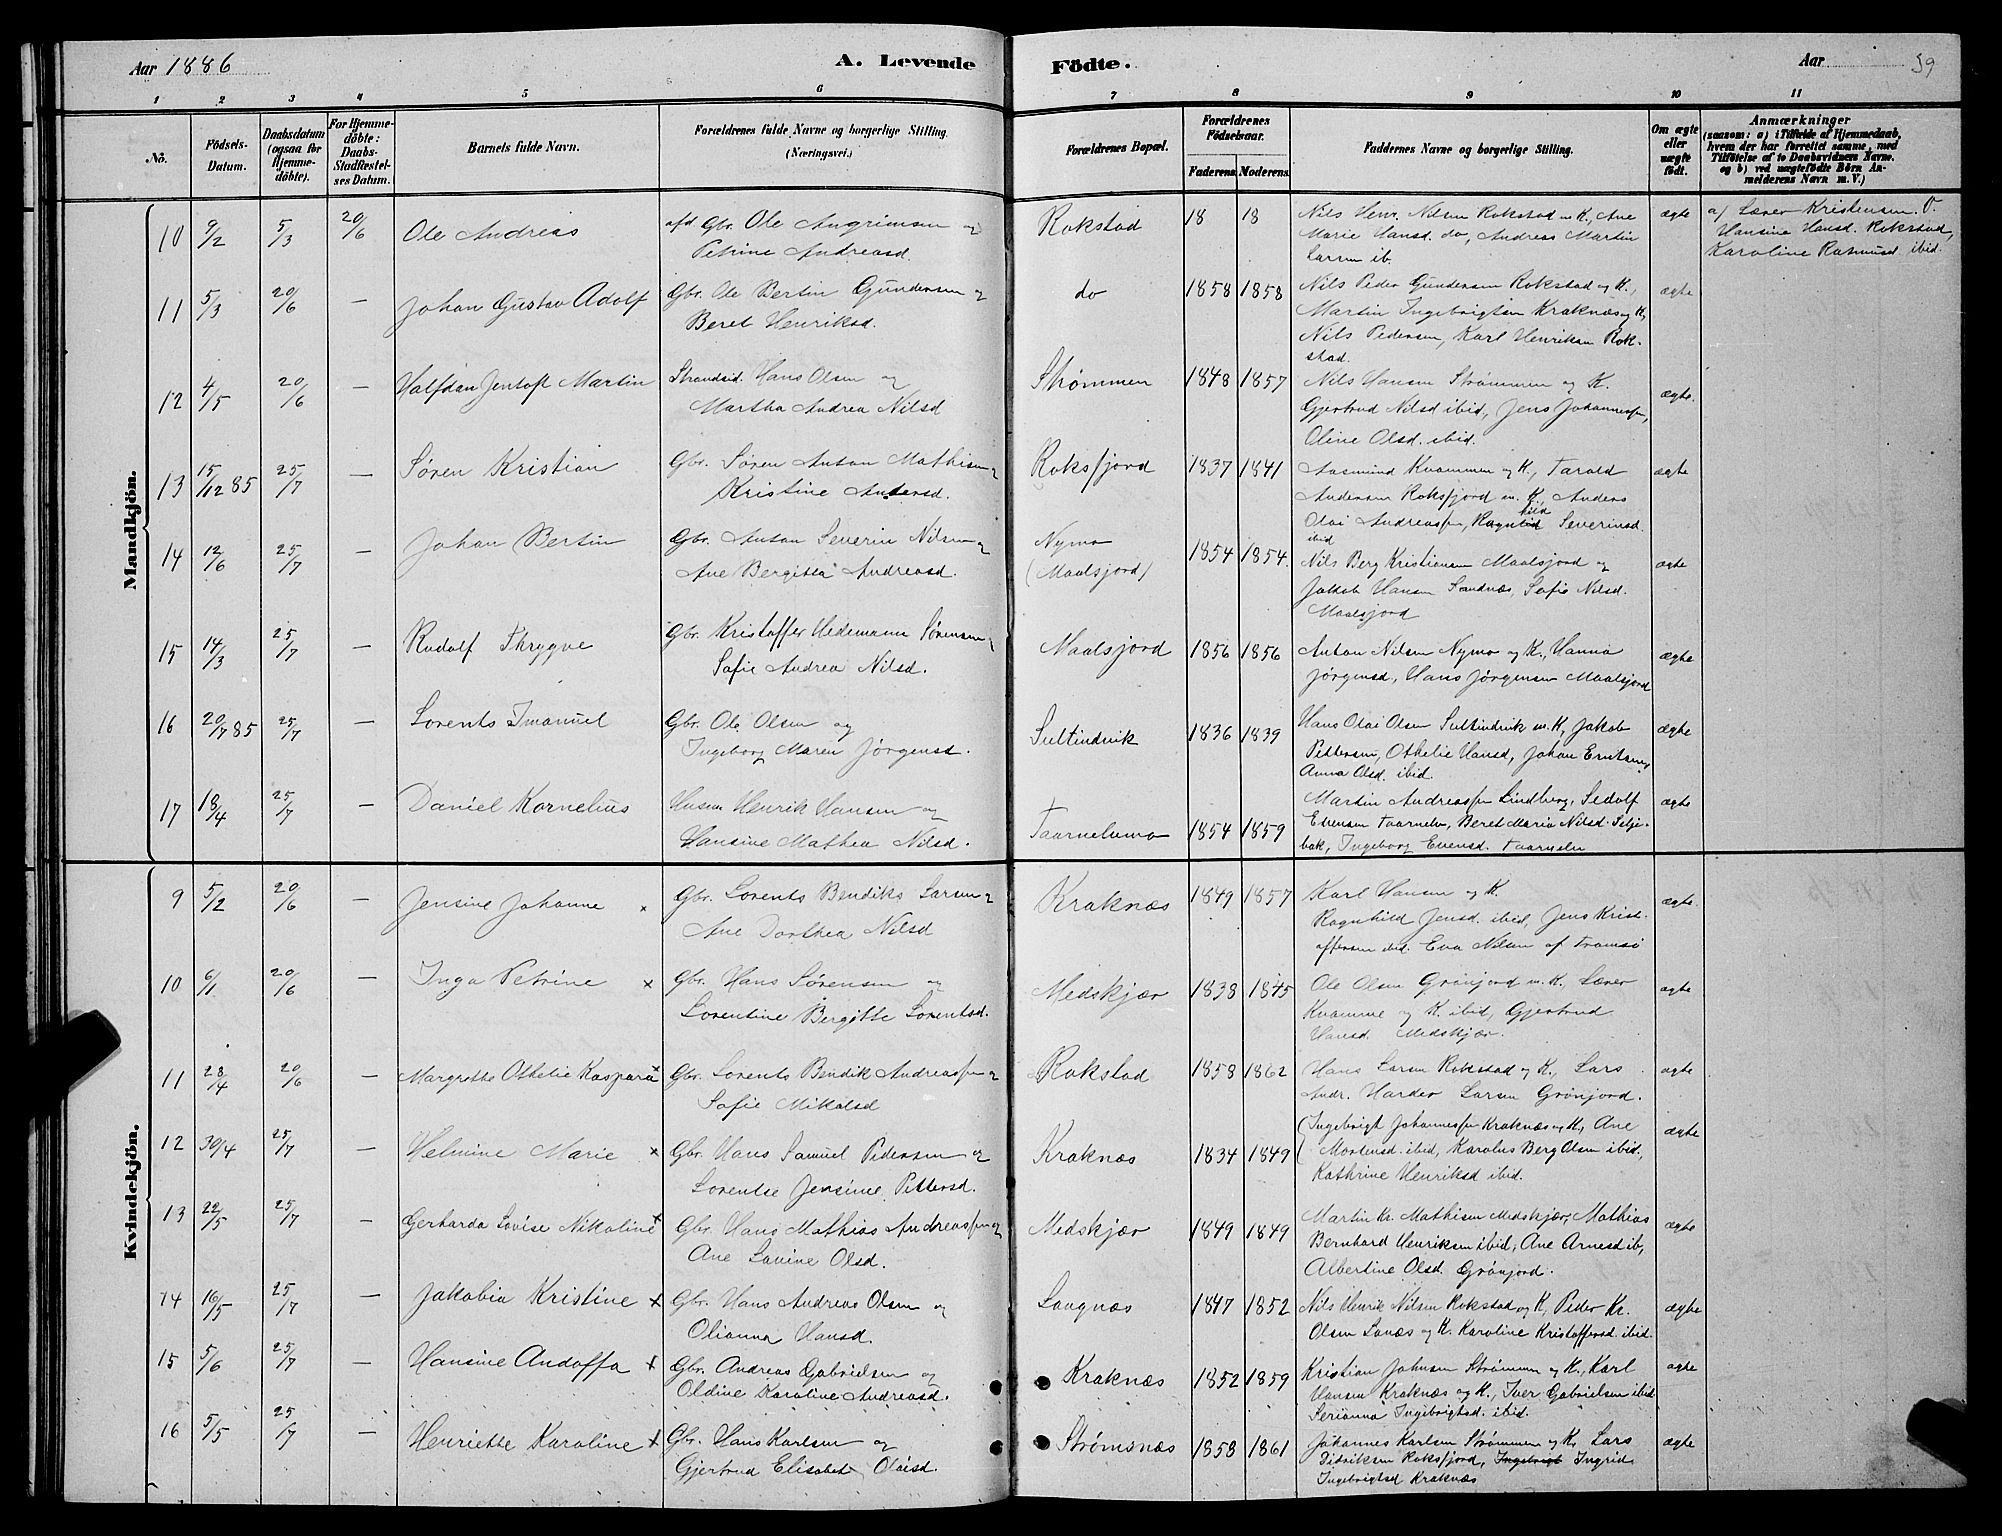 Aar 1886
A. Levende
Födte.
Aar
39
1 2 3 4 5 6 7 8 9 10 11
No.
Födsels-Datum.
Daabsdatum (ogsaa for Hjemme-döbte).
For Hjemme-döbte: Daabs-Stadfæstel-ses Datum.
Barnets fulde Navn.
Forældrenes fulde Navne og borgerlige Stilling.
(Næringsvei.)
Forældrenes Bopæl.
Forældrenes Födselsaar.
Faderens Moderens
Faddernes Navne og borgerlige Stilling.
Om ægte eller uægte födt.
Anmærkninger
(saasom: a) i Tilfælde af Hjemmedaab,
hvem der har forrettet samme, med
Tilföielse af to Daabsvidners Navne.
og b) ved uægtefödte Börn An-
melderens Navn m. V.)
Mandkjön.
10 9/2 5/3 20/6 Ole Andreas afd Gbr. Ole Angrimsen og Rokstad 18 18 Nils Henr. Nilsen Rokstad m K., Ane ægte a) Lærer Kristensen. V.
Petrine Andreasd. Marie Hansd. do, Andreas Martin Hansine Hansd. Rokstad,
Larsen ib. Karoline Rasmusd ibid.
11 5/3 20/6 — Johan Gustav Adolf Gbr. Ole Bertin Gundersen og do 1858 1858 Nils Peder Gundersen Rokstad og K., ægte
Beret Henriksd. Martin Ingebrigtsen Kraknæs og K,
Nils Pedersen, Karl Henriksen Rok-
stad.
12 4/5 20/6 — Halfdan Jentoft Martin Strandsid. Hans Olsen og Strømmen 1848 1857 Nils Hansen Strømmen og K. ægte.
Martha Andrea Nilsd Gjertrud Nilsd ibid, Jens Johannessen,
Oline Olsd. ibid.
13 15/12 85 25/7 — Søren Kristian Gbr. Søren Anton Mathisen og Roksfjord 1837 1841 Aasmund Kvammen og K., Tarald ægte
Kristine Andersd. Andersen Roksfjord m. K., Anders
Olai Andreassen, Ragnhild Severinsd
ibid
14 12/6 25/7 — Johan Bertin Gbr. Anton Severin Nilsen og Nymo 1854 1854. Nils Berg Kristiansen Maalsjord og ægte
Ane Bergitta Andreasd. (Maalsjord) Jakob Hansen Sandnæs, Sofie Nilsd.
Maalsjord
15 14/3 25/7 — Rudolf Thrygve Gbr. Kristoffer Hedemann Sørensen og Maalsjord 1856 1856 Anton Nilsen Nymo og K., Hanna ægte
Sofie Andrea Nilsd. Jørgensd, Hans Jørgensen Maalsjord
16 20/7 85 25/7 — Lorents Imanuel Gbr. Ole Olsen og Sultindvik 1836 1839 Hans Olai Olsen Sultindvik m. K, Jakob ægte
Ingeborg Maren Jørgensd. Pettersen, Othelie Hansd, Johan Erntsen,
Anna Olsd. ibid.
17 18/4 25/7 — Daniel Kornelius Husm Henrik Hansen og Taarnelvmo 1854 1859 Martin Andreassen Lindberg, Sedolf ægte
Hansine Mathea Nilsd. Evensen Taarnelv, Beret Maria Nilsd. Selje-
bak, Ingeborg Evensd. Taarnelv
Kvindekjön.
9 5/2 20/6 — Jensine Johanne x Gbr. Lorents Bendiks Larsen og Kraknæs 1849 1857 Karl Hansen og K. ægte.
Ane Dorthea Nilsd Ragnhild Jensd. ibid, Jens Krist-
offersen ibid. Eva Nilsen af Tromsø
10 6/1 20/6 — Inga Petrine x Gbr. Hans Sørensen og Medskjær 1838 1845 Ole Olsen Grønjord m. K., Lærer ægte
Lorentine Bergitte Lorentsd. Kvamme og K. ibid, Gjertrud
Hansd. Medskjær.
11 28/4 20/6 — Margrethe Othelie Kaspara x Gbr. Lorents Bendik Andreassen og Rokstad 1858 1862 Hans Larsen Rokstad og K., Lars ægte
Sofie Mikalsd Andr. Harder Larsen Grønjord.
12 30/4 25/7 — Helmine Marie x Gbr. Hans Samuel Pedersen og Kraknæs 1834 1849 Ingebrigt Johannessen Kraknæs og K., Ane ægte
Lorentse Jensine Pettersd. Mortensd. ibid, Karolus Berg Olsen ibid.,
Kathrine Henriksd ibid.
13 22/5 25/7 — Gerharda Lovise Nikoline x Gbr. Hans Mathias Andreassen og Medskjær 1849 1849 Martin Kr. Mathisen Medskjær, Mathias ægte
Ane Lavine Olsd. Bernhard Henriksen ibid; Ane Arnesd ib,
Albertine Olsd. Grønjord.
14 16/5 25/7 — Jakobia Kristine x Gbr. Hans Andreas Olsen og Langnæs 1847 1852 Nils Henrik Nilsen Rokstad og K, Peder Kr. ægte
Olianna Hansd. Olsen Lanæs og K. Karoline Kristoffersd. ibid.
15 5/6 25/7 — Hansine Andoffa x Gbr. Andreas Gabrielsen og Kraknæs 1852 1859 Kristian Johnsen Strømmen og K., Karl ægte
Oldine Karoline Andreasd. Hansen Kraknæs og K., Iver Gabrielsen ibid
Serianna Ingebrigtsd. ibid.
16 5/5 25/7 Henriette Karoline x Gbr. Hans Karlsen og Strømsnæs 1858 1861 Johannes Karlsen Strømmen og K. Lars ægte
Gjertrud Elisabet Olaisd. Didriksen Roksfjord, Ingebrigt Ingrid
Ingebrigtsd Kraknæs